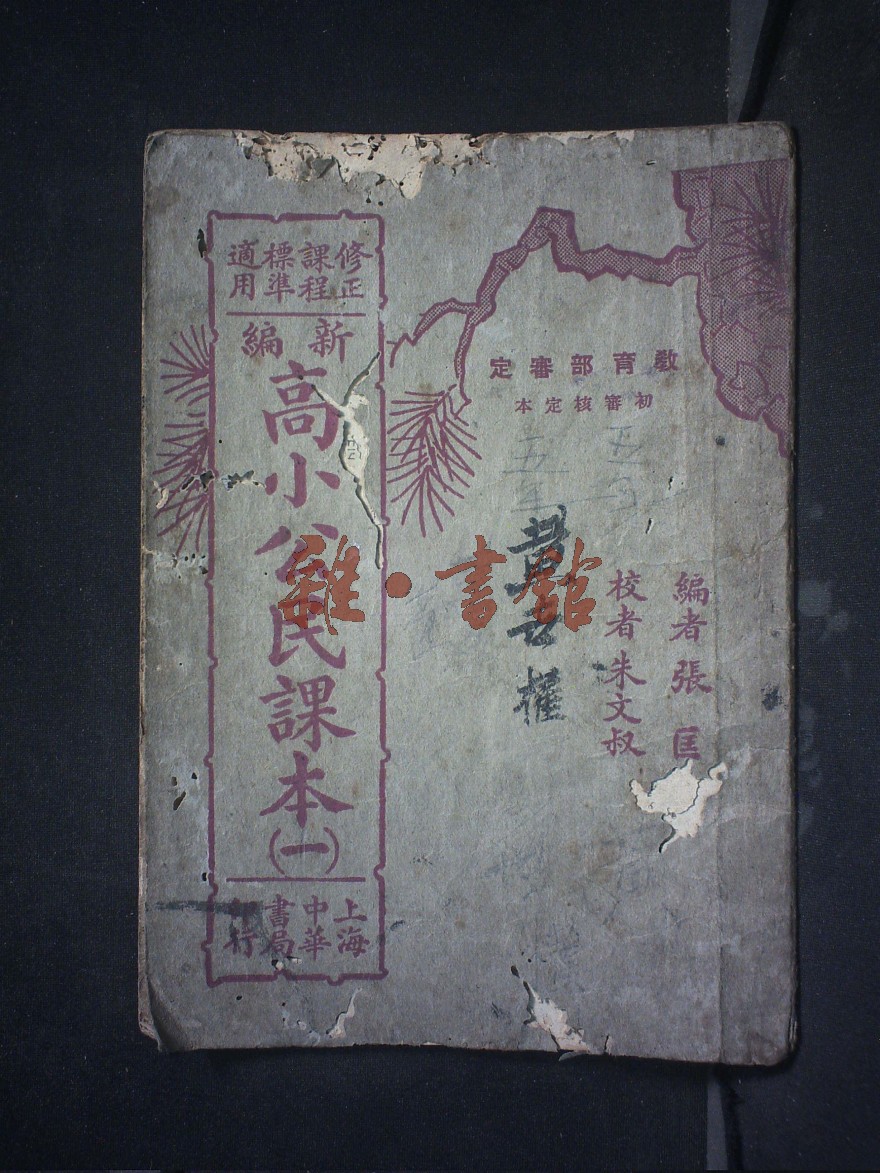 教育部審定
初審核定本
編者 張匡
校者 朱文叔
修正課程標準適用
新編
高小公民課本(一)
上海中華書局印行
雜·書館
權